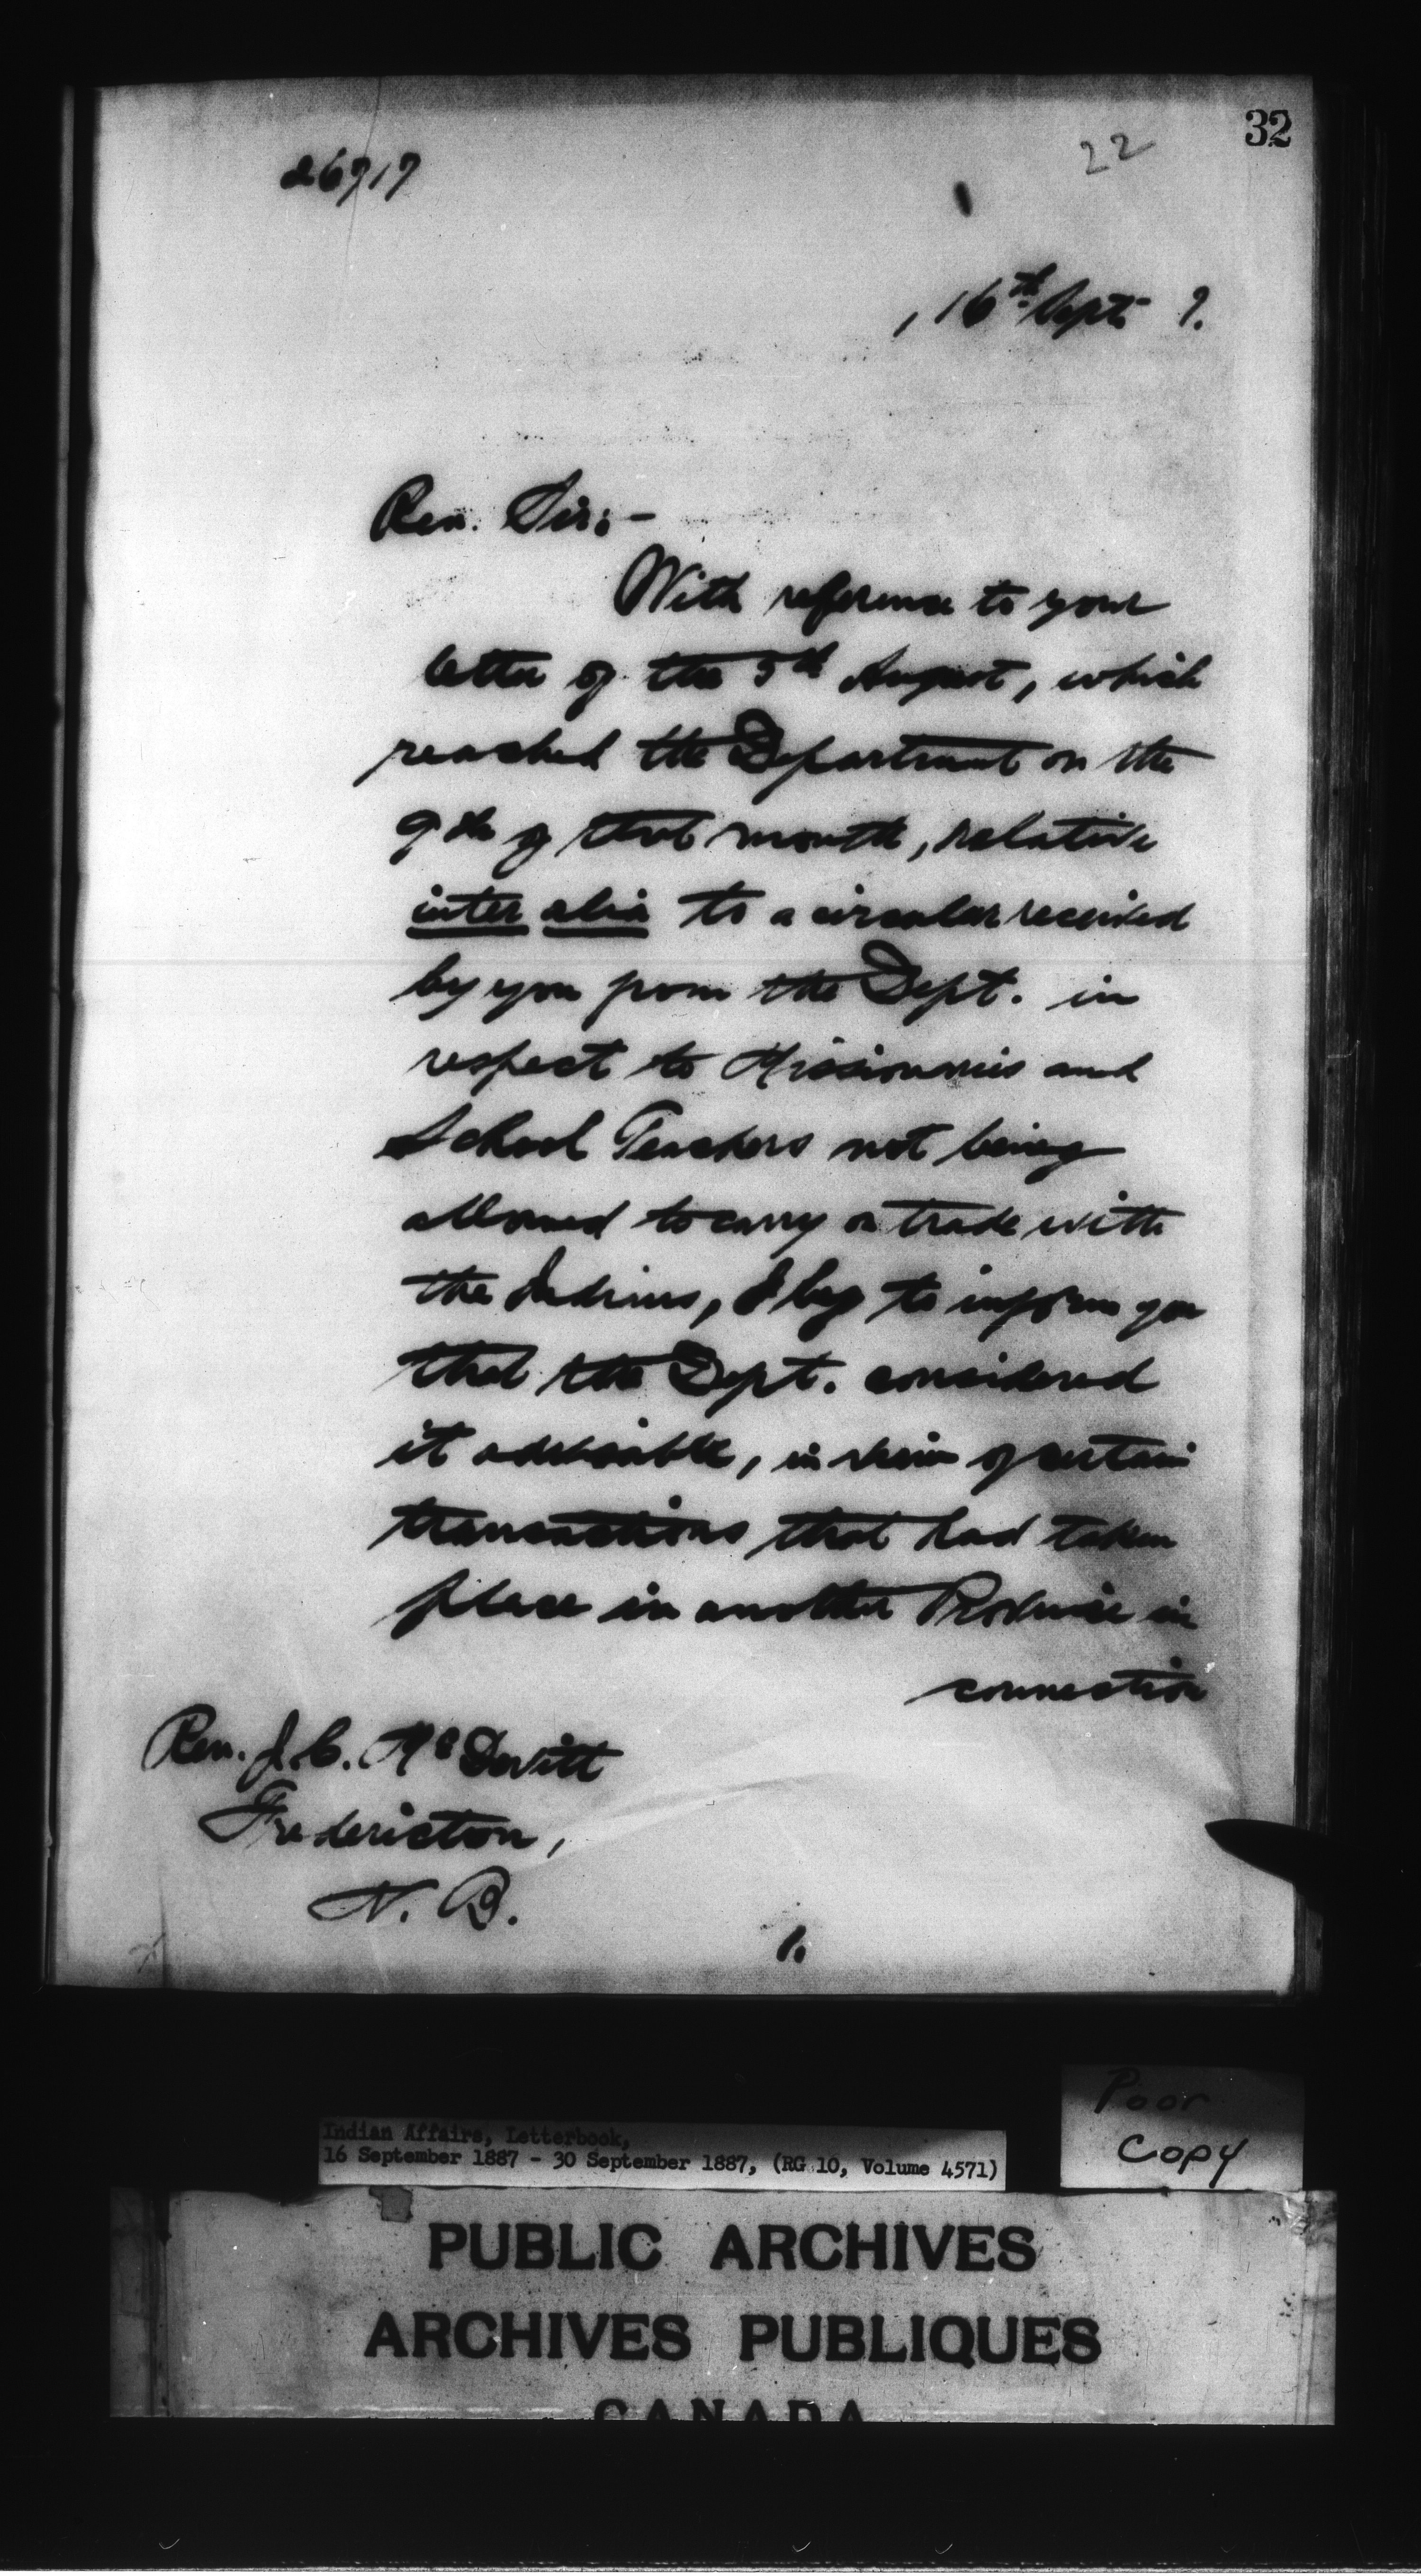 32
22
26717
, 16th Sept. 7.
Rev. Sir:-
With reference to your
letter of the 5th August, which
reached the Department on the
9th of that month, relative
inter alia to a circular received
by you from the Dept. in
respect to Missionaries and
School Teachers not being
allowed to carry on trade with
the Indians, I beg to inform you
that the Dept. considered
it advisable, in view of certain
transactions that had taken
place in another Province in
connection
Rev. J. C. McDevitt
Fredericton,
N. B.
1.
Poor
Copy
Indian Affairs, Letterbook,
16 September 1887 - 30 September 1887, (RG 10, Volume 4571)
PUBLIC ARCHIVES
ARCHIVES PUBLIQUES
CANADA